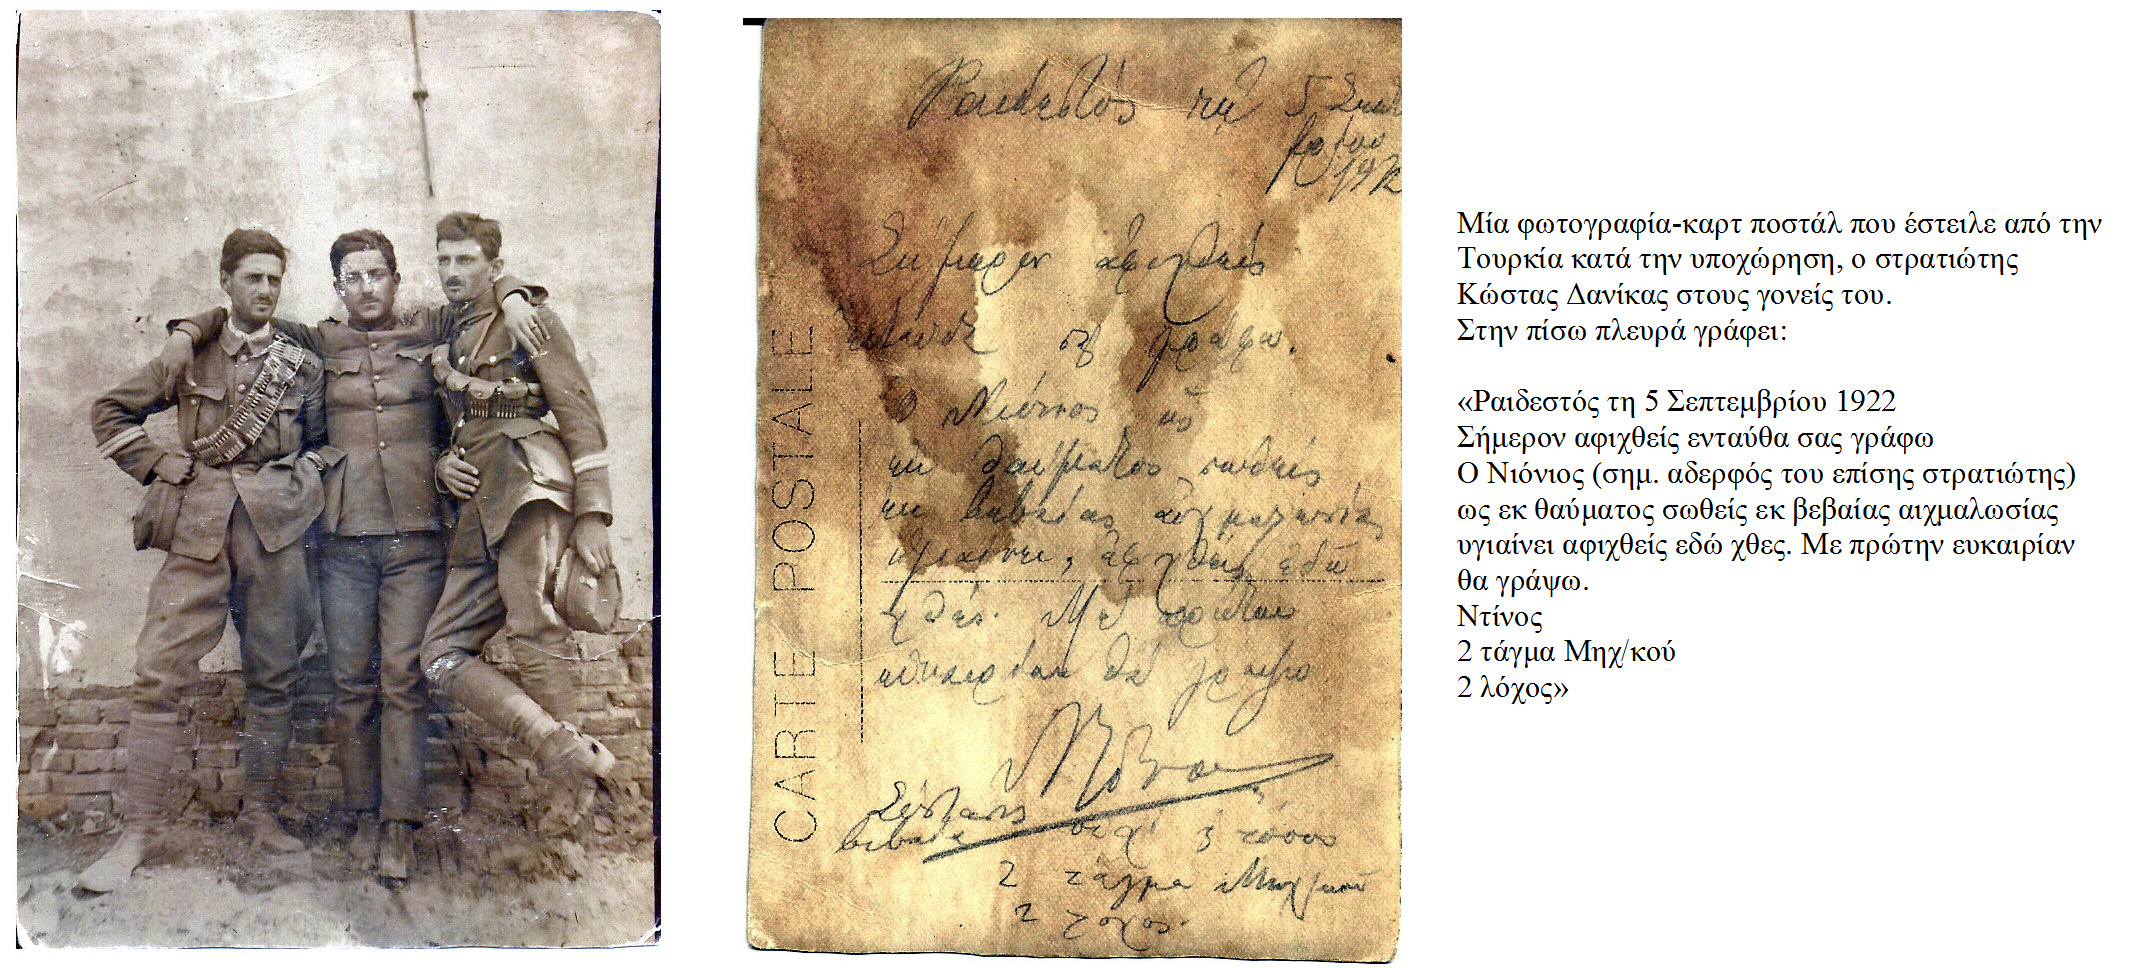 Ραιδεστός τῇ 5 Σεπτ
βρίου
192
Σήμερον ἀφιχθείς
ἐνταῦθα σᾶς γράφω.
Ὁ Νιόνιος ὡς
ἐκ θαύματος σωθείς
ἐκ βεβαίας αἰχμαλωσίας
ὑγιαίνει, ἀφιχθείς ἐδῶ
χθές. Μέ πρώτην
εὐκαιρίαν θά γράψω
Ντίνος
2 τάγμα Μηχ/κοῦ
2 λόχος.
CARTE POSTALE
Μία φωτογραφία-καρτ ποστάλ που έστειλε από την
Τουρκία κατά την υποχώρηση, ο στρατιώτης
Κώστας Δανίκας στους γονείς του.
Στην πίσω πλευρά γράφει:
«Ραιδεστός τη 5 Σεπτεμβρίου 1922
Σήμερον αφιχθείς ενταύθα σας γράφω
Ο Νιόνιος (σημ. αδερφός του επίσης στρατιώτης)
ως εκ θαύματος σωθείς εκ βεβαίας αιχμαλωσίας
υγιαίνει αφιχθείς εδώ χθες. Με πρώτην ευκαιρίαν
θα γράψω.
Ντίνος
2 τάγμα Μηχ/κού
2 λόχος»